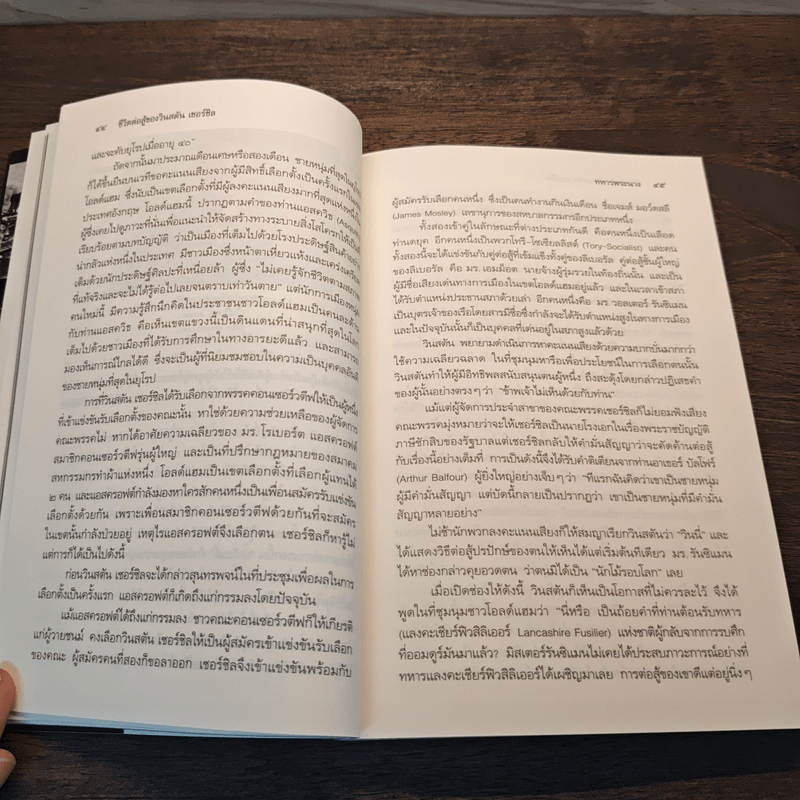 ๔๔ ชีวิตต่อสู้ของวินสตัน เชอร์ชิล
และจะคับยุโรปเมื่ออายุ ๔๐"
ถัดจากนั้นมาประมาณเดือนเศษหรือสองเดือน ชายหนุ่มที่สุดในยุโรป
ก็ได้ขึ้นยืนบนเวทีขอคะแนนเสียงจากผู้มีสิทธิ์เลือกตั้งเป็นครั้งแรกใน
โอลด์แฮม ซึ่งนับเป็นเขตเลือกตั้งที่มีผู้ลงคะแนนเสียงมากที่สุดแห่งหนึ่ง
ประเทศอังกฤษ โอลด์แฮมนี้ ปรากฏตามคำของท่านแอสควิธ
ผู้ซึ่งเคยไปดูภาวะที่นั่นเพื่อแนะนำให้จัดสร้างทางระบายสิ่งโสโครกให้เป็น
เรียบร้อยตามบทบัญญัติ ว่าเป็นเมืองที่เต็มไปด้วยโรงประดิษฐ์สินค้า
น่ากลัวแห่งหนึ่งในประเทศ มีชาวเมืองซึ่งหน้าตาเหี่ยวแห้งและเคร่งเครียด
เต็มด้วยนักประดิษฐ์ศิลปะที่เหนื่อยล้า ผู้ซึ่ง "ไม่เคยรู้จักชีวิตตาม
ที่แท้จริงและจะไม่ได้รู้ต่อไปเลยจนตราบเท่าวันตาย" แต่นักการเมืองหนุ่ม
คนใหม่นี้ มีความรู้สึกนึกคิดในประชาชนชาวโอลด์แฮมเป็นคนละด้าน
กับท่านแอสควิธ คือเห็นเขตแขวงนี้เป็นดินแดนที่น่าสนุกที่สุดในโลก
เต็มไปด้วยชาวเมืองที่ได้รับการศึกษาในทางอารยะดีแล้ว และสามารถ
มองเห็นการณ์ไกลได้ดี ซึ่งจะเป็นผู้ที่นิยมชมชอบในความเป็นบุคคล
ของชายหนุ่มที่สุดในยุโรป
การที่วินสตัน เชอร์ชิลได้รับเลือกจากพรรคคอนเซอร์วตีฟให้เป็นผู้หนึ่ง
ที่เข้าแข่งขันรับเลือกตั้งของคณะนั้น หาใช่ด้วยความช่วยเหลือของผู้จัดการ
คณะพรรคไม่ หากได้อาศัยความเฉลียวของ มร.โรเบอร์ต แอสครอฟต์
สมาชิกคอนเซอร์วตีฟรุ่นผู้ใหญ่ และเป็นที่ปรึกษากฎหมายของสมาคม
สหกรรมกรทำฝ้าแห่งหนึ่ง โอลด์แฮมเป็นเขตเลือกตั้งที่เลือกผู้แทนได้
๒ คน และแอสครอฟต์กำลังมองหาใครสักคนหนึ่งเป็นเพื่อนสมัครรับแข่งขัน
เลือกตั้งด้วยกัน เพราะเพื่อนสมาชิกคอนเซอร์วตีฟด้วยกันที่จะสมัคร
ในเขตนั้นกำลังป่วยอยู่ เหตุไรแอสครอฟต์จึงเลือกตน เชอร์ชิลก็หารู้ไม่
แต่การก็ได้เป็นไปดังนี้
ก่อนวินสตัน เชอร์ชิลจะได้กล่าวสุนทรพจน์ในที่ประชุมเพื่อผลในการ
เลือกตั้งเป็นครั้งแรก แอสครอฟต์ก็เกิดถึงแก่กรรมลงโดยปัจจุบัน
แม้แอสครอฟต์ได้ถึงแก่กรรมลง ชาวคณะคอนเซอร์วตีฟก็ให้เกียรติ
แก่ผู้วายชนม์ คงเลือกวินสตัน เชอร์ชิลให้เป็นผู้สมัครเข้าแข่งขันรับเลือก
ของคณะ ผู้สมัครคนที่สองก็ขอลาออก เชอร์ชิลจึงเข้าแข่งขันพร้อมกับ
ทหารพระนาง ๔๕
ผู้สมัครรับเลือกคนหนึ่ง ซึ่งเป็นคนทำงานกินเงินเดือน ชื่อเจมส์ มอว์ดสลี
(James Mosley) เลขานุการของสหบาลกรรมกรอีกประเภทหนึ่ง
ทั้งสองเข้าคู่ในลักษณะที่ต่างประเภทกันดี คือคนหนึ่งเป็นเลือด
ท่านดยุค อีกคนหนึ่งเป็นพวกโทรี-โซเชียลลิสต์ (Tory-Socialist) และคน
ทั้งสองนี้จะได้แข่งขันกับคู่ต่อสู้ที่เข้มแข็งทั้งคู่ของลิเบอรัล คู่ต่อสู้ชั้นผู้ใหญ่
ของลิเบอรัล คือ มร.เอมม็อต นายจ้างผู้รุ่มรวยในท้องถิ่นนั้น และเป็น
ผู้มีชื่อเสียงเด่นทางการเมืองในเขตโอลด์แฮมอยู่แล้ว และในเวลาเข้าสภา
ได้รับตำแหน่งประธานสภาด้วยเล่า อีกคนหนึ่งคือ มร.วอลเตอร์ รันซิแมน
เป็นบุตรเจ้าของเรือโดยสารมีชื่อซึ่งกำลังจะได้รับตำแหน่งสูงในทางการเมือง
และในปัจจุบันนั้นก็เป็นบุคคลที่เด่นอยู่ในสภาสูงแล้วด้วย
วินสตัน พยายามดำเนินการหาคะแนนเสียงด้วยความบากบั่นมากกว่า
ใช้ความเฉลียวฉลาด ในที่ชุมนุมหารือเพื่อประโยชน์ในการเลือกตนนั้น
วินสตันทำให้ผู้มีอิทธิพลสนับสนุนตนผู้หนึ่ง ถึงสะดุ้งโดยกล่าวปฏิเสธคำ
ของผู้นั้นอย่างตรงๆ ว่า "ข้าพเจ้าไม่เห็นด้วยกับท่าน"
แม้แต่ผู้จัดการประจำสาขาของคณะพรรคเชอร์ชิลก็ไม่ยอมฟังเสียง
คณะพรรคมุ่งหมายว่าจะให้เชอร์ชิลเป็นนายโรงเอกในเรื่องพระราชบัญญัติ
ภาษีชักสิบของรัฐบาลแต่เชอร์ชิลกลับให้คำมั่นสัญญาว่าจะคัดค้านต่อสู้
กับเรื่องนี้อย่างเต็มที่ การเป็นดังนี้จึงได้รับคำติเตียนจากท่านอาเธอร์ บัลโฟร์
(Arthur Balfour) ผู้ยิ่งใหญ่อย่างเจ็บๆ ว่า "ทีแรกฉันคิดว่าเขาเป็นชายหนุ่ม
ผู้มีคำมั่นสัญญา แต่บัดนี้กลายเป็นปรากฏว่า เขาเป็นชายหนุ่มที่มีคำมั่น
สัญญาหลายอย่าง"
ไม่ช้านักพวกลงคะแนนเสียงก็ให้สมญาเรียกวินสตันว่า "วินนี่" และ
ได้แสดงวิธีต่อสู้ปรปักษ์ของตนให้เห็นได้แต่เริ่มต้นทีเดียว มร.รันซิแมน
ได้หาช่องกล่าวคุยอวดตน ว่าตนมิได้เป็น "นักโม้รอบโลก" เลย
เมื่อเปิดช่องให้ดังนี้ วินสตันก็เห็นเป็นโอกาสที่ไม่ควรละไว้ จึงได้
พูดในที่ชุมนุมชาวโอลด์แฮมว่า "นี่หรือ เป็นถ้อยคำที่ท่านต้อนรับทหาร
(แลงคะเชียร์ฟิวสิลิเออร์ Lancashire Fusilier) แห่งชาติผู้กลับจากการรบศึก
ที่ออมดูร์มันมาแล้ว? มิสเตอร์รันซิแมนไม่เคยได้ประสบภาวะการณ์อย่างที่
ทหารแลงคะเชียร์ฟิวสิลิเออร์ได้เผชิญมาเลย การต่อสู้ของเขาดีแต่อยู่นิ่งๆ